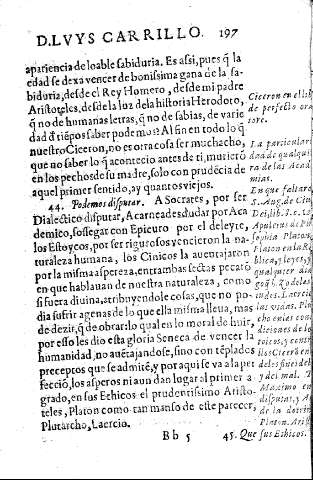 D. LVYS CARRILLO. 197
apariencia de loable sabiduria. Es assi, pues q̃ la
edad se dexa vencer de bonissima gana de la sa-
biduria, desde el Rey Homero, desde mi padre
Aristoteles, desde la luz de la historia Herodoto,
q̃ no de humanas letras, q̃ no de sabias, de varie
dad d̃ tiẽpos saber podemos? Al fin en todo lo q̃
nuestro Ciceron, no es otra cosa ser muchacho,
que no saber lo q̃ acontecio antes de ti, murierõ
en los pechos de su madre, solo con prudẽcia de
aquel primer sentido, ay quantos viejos.
44. Podemos disputar. A Socrates, por ser
Dialectico disputar, A Carneades dudar por Aca
demico, sossegar con Epicuro por el deleyte,
los Estoycos, por ser rigurosos vencieron la na-
turaleza humana, los Cinicos la auentajaron
por la misma aspereza, entrambas sectas pecarõ
en que hablauan de nuestra naturaleza, como
si fuera diuina, atribuyendole cosas, que no po-
dia sufrir agenas de lo que ella misma lleua, mas
de dezir, q̃ de obrar: lo qual en lo moral de huir,
por esso les dio esta gloria Seneca de vencer la
humanidad, no auẽtajandose, sino con tẽplados
preceptos que se admitẽ, y por aqui se va a la per
feciõ, los asperos ni aun dan lugar al primer a
grado, en sus Ethicos el prudentissimo Aristo-
teles, Platon como tan manso de este parecer,
Plutarcho, Laercio.
Bb 5
Ciceron en el lib.
de perfecto ora
tore.
La particulari
dad de qualqui
ra de las Acad
mias.
En que faltarõ,
S. Aug. de Ciu.
Dei, lib.
Apuleius de Ph
Platon,
Platon en la Re
blica, y leyes, y
qualquier dia
Laercio
las vidas.
diciones de
toicos, y
Ciceron
y del mal. T
Maximo en
disputas, y A
de la dotrin
Platon.
45. Que sus Ethicos.